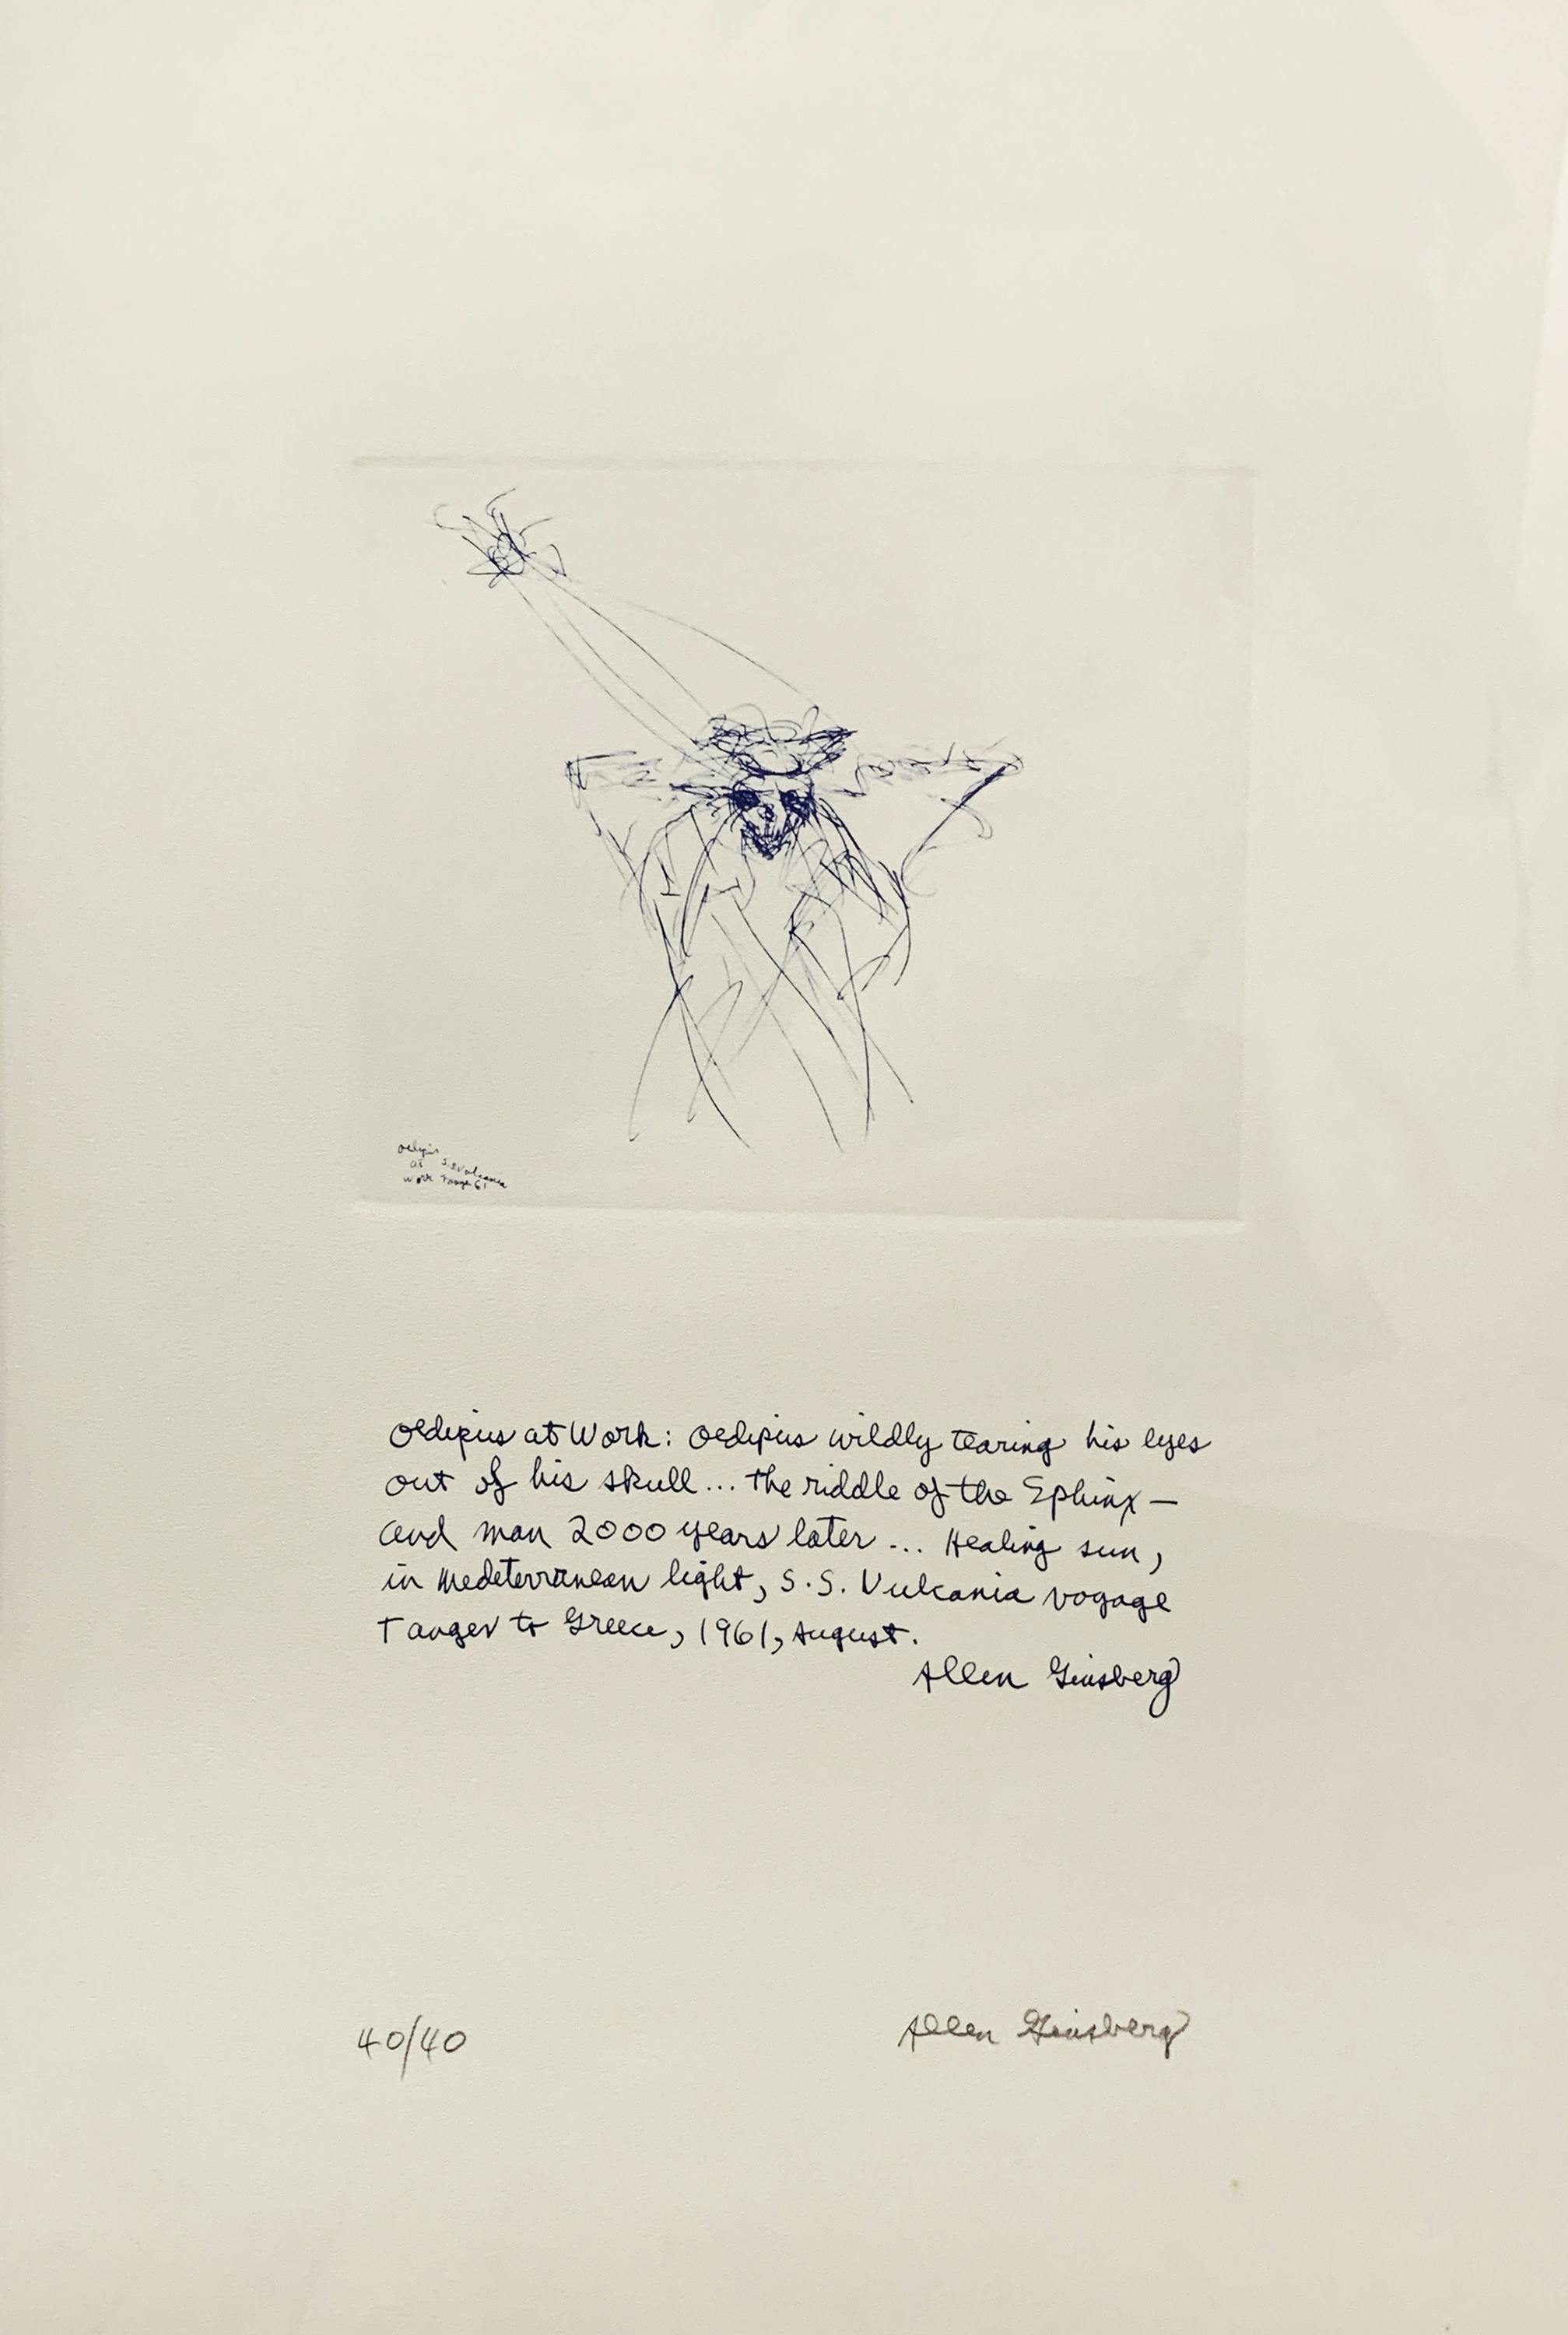 Oedipus
at S.S. Vulcania
Work Tanger 61
Oedipus at Work: Oedipus wildly tearing his eyes
out of his skull... the riddle of the Sphinx —
and man 2000 years later ... Healing sun,
in Mediterranean light, S.S. Vulcania voyage
Tanger to Greece, 1961, August.
Allen Ginsberg
40/40 Allen Ginsberg